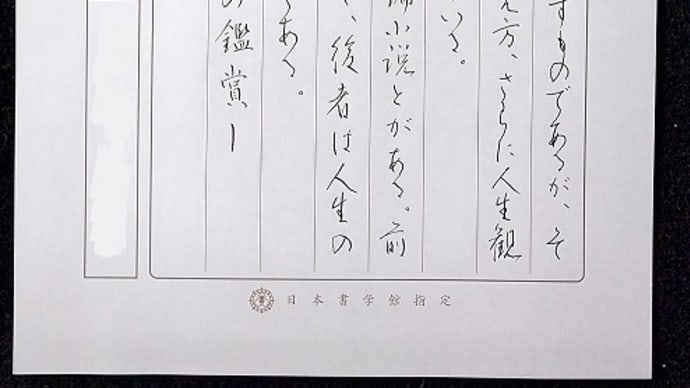 すものであるが、そ
え方、さらに人生観
いる。
編小説とがある。前
、後者は人生の
ある。
の鑑賞ー
日本書学館指定